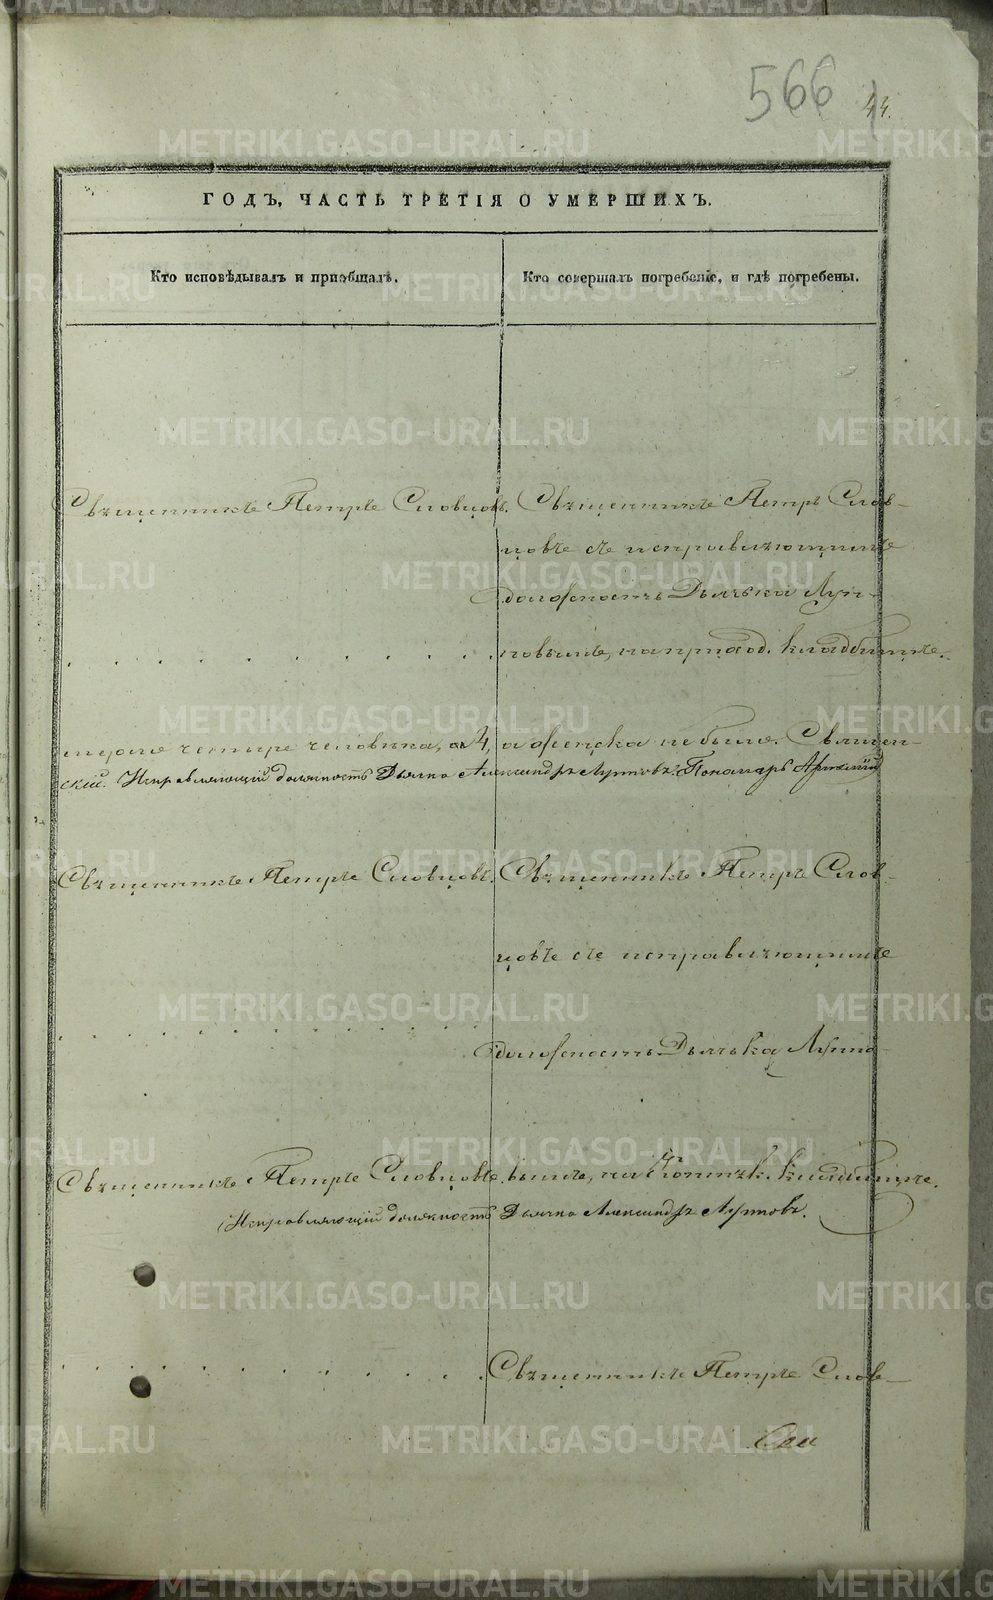 566
44.
ГОДЪ, ЧАСТЬ ТРЕТІЯ О УМЕРШИХЪ.
Кто исповѣдывалъ и пріобщалъ.
Кто совершалъ погребеніе, и гдѣ погребены.
Священникъ Петръ Словцовъ.
Священникъ Петръ Слов-
цовъ съ исправляющимъ
должность Дьячка Луп-
повымъ, на приход. кладбищѣ.
четыре человѣка, а женска не было. Священ-
скій. Исправляющій должность Дьячка Александръ Лупповъ. Пономарь
Священникъ Петръ Словцовъ.
Священникъ Петръ Слов-
цовъ съ исправляющимъ
должность Дьячка Луппо-
Священникъ Петръ Словцовъ.
вымъ, на кладбищѣ.
Исправляющій должность Дьячка Александръ Лупповъ.
Священникъ Петръ Слов-
METRIKI.GASO-URAL.RU